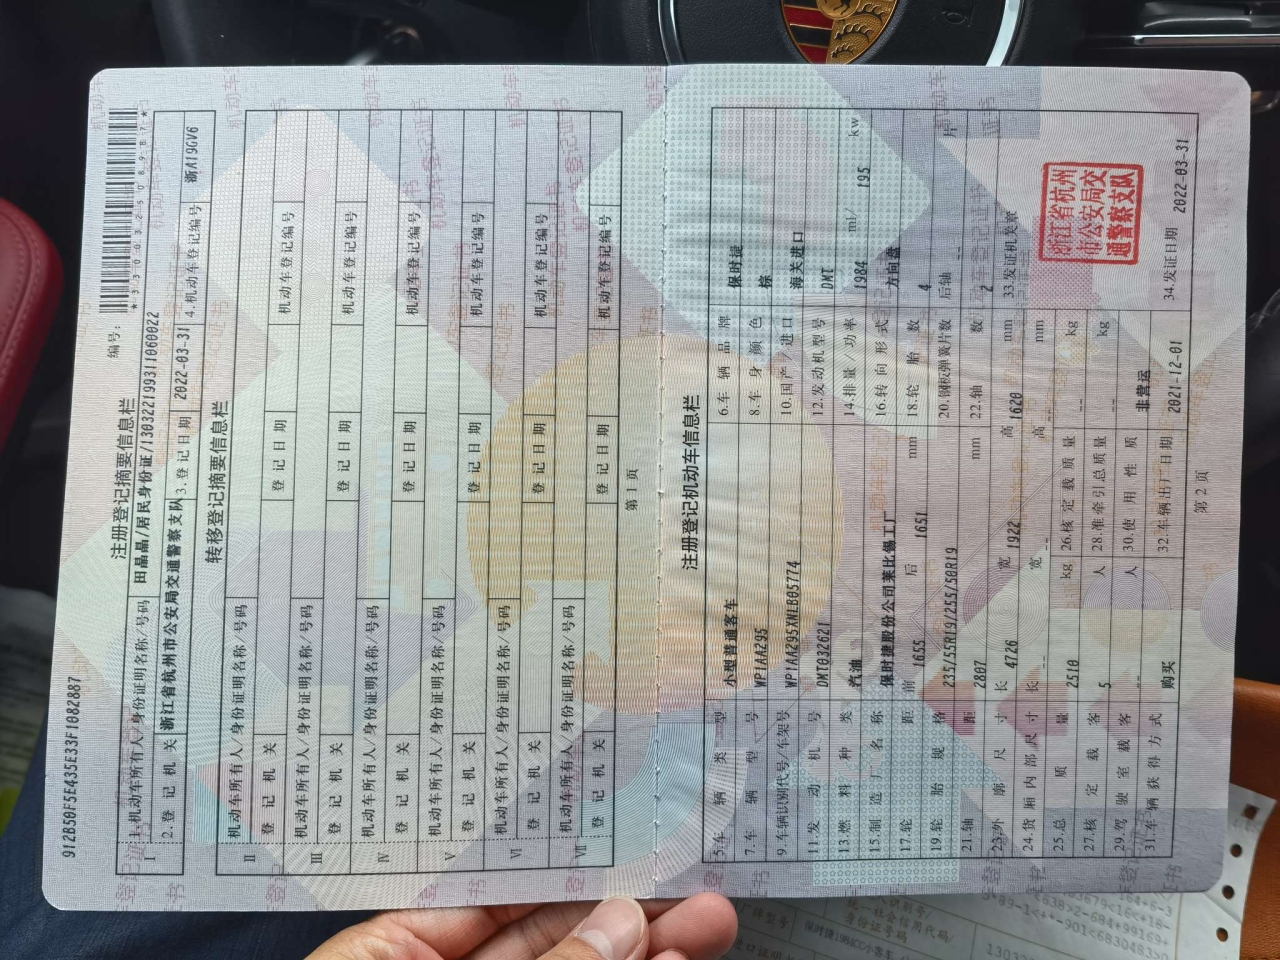 912B50F5E435E33F1082887
编号：
*330032508987*
注册登记摘要信息栏
I 1.机动车所有人/身份证明名称/号码 田晶晶/居民身份证/130322199311060022
2.登记机关 浙江省杭州市公安局交通警察支队 3.登记日期 2022-03-31 4.机动车登记编号 浙A19GV6
转移登记摘要信息栏
II 机动车所有人/身份证明名称/号码
登记机关 登记日期 机动车登记编号
III 机动车所有人/身份证明名称/号码
登记机关 登记日期 机动车登记编号
IV 机动车所有人/身份证明名称/号码
登记机关 登记日期 机动车登记编号
V 机动车所有人/身份证明名称/号码
登记机关 登记日期 机动车登记编号
VI 机动车所有人/身份证明名称/号码
登记机关 登记日期 机动车登记编号
VII 机动车所有人/身份证明名称/号码
登记机关 登记日期 机动车登记编号
第 1 页
注册登记机动车信息栏
5.车辆类型 小型普通客车 6.车辆品牌 保时捷
7.车辆型号 WP1AA295 8.车身颜色 棕
9.车辆识别代号/车架号 WP1AA295XNLB05774 10.国产/进口 海关进口
11.发动机号 DMT032621 12.发动机型号 DMT
13.燃料种类 汽油 14.排量/功率 1984 ml/ 195 kw
15.制造厂名称 保时捷股份公司莱比锡工厂 16.转向形式 方向盘
17.轮距 前 1655 后 1651 mm 18.轮胎数 4
19.轮胎规格 235/55R19/255/50R19 20.钢板弹簧片数 后轴 -- 片
21.轴距 2807 mm 22.轴数 2
23.外廓尺寸 长 4726 宽 1922 高 1620 mm 33.发证机关章
24.货厢内部尺寸 长 -- 宽 -- 高 -- mm
25.总质量 2510 kg 26.核定载质量 -- kg
27.核定载客 5 人 28.准牵引总质量 -- kg
29.驾驶室载客 -- 人 30.使用性质 非营运
31.车辆获得方式 购买 32.车辆出厂日期 2021-12-01 34.发证日期 2022-03-31
浙江省杭州
市公安局交
通警察支队
第 2 页